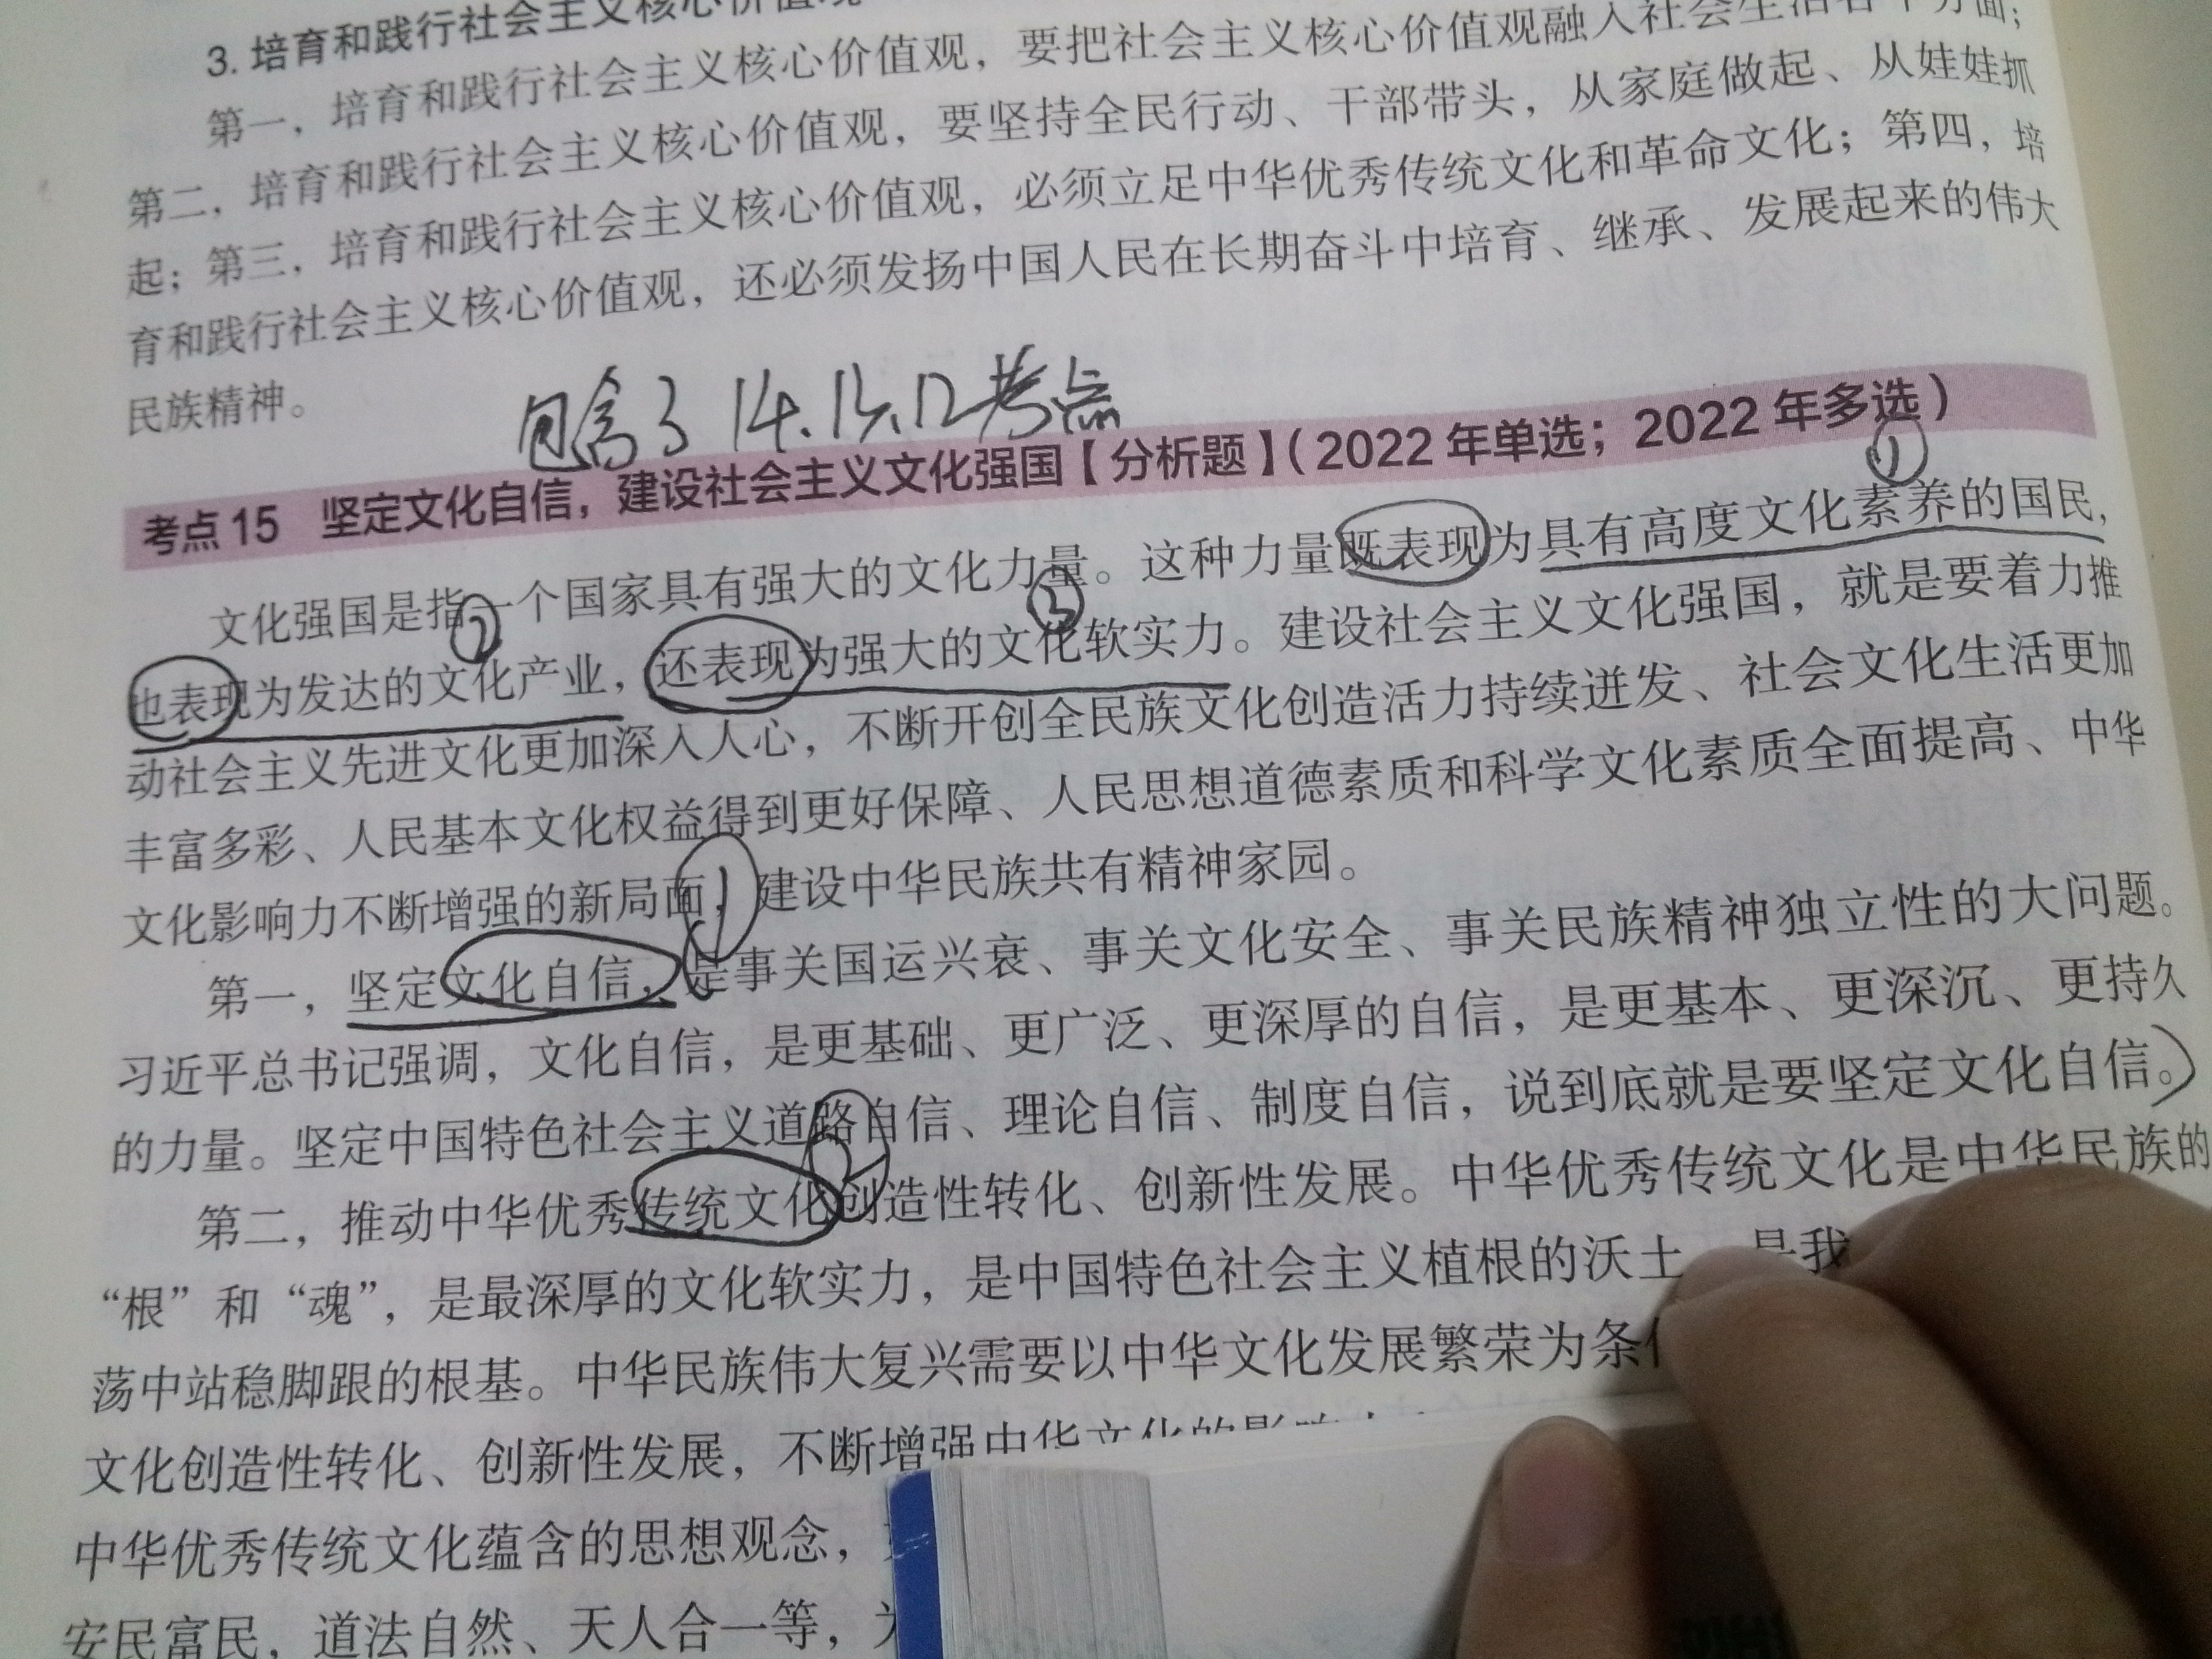 3. 培育和践行社会主义核心价值观
第一，培育和践行社会主义核心价值观，要把社会主义核心价值观融入社会生活各个方面；
第二，培育和践行社会主义核心价值观，要坚持全民行动、干部带头，从家庭做起、从娃娃抓
起；第三，培育和践行社会主义核心价值观，必须立足中华优秀传统文化和革命文化；第四，培
育和践行社会主义核心价值观，还必须发扬中国人民在长期奋斗中培育、继承、发展起来的伟大
民族精神。
包含了 14.13.12考点
考点 15 坚定文化自信，建设社会主义文化强国【分析题】（2022 年单选；2022 年多选）
①
文化强国是指一个国家具有强大的文化力量。这种力量既表现为具有高度文化素养的国民，
② ③
也表现为发达的文化产业，还表现为强大的文化软实力。建设社会主义文化强国，就是要着力推
动社会主义先进文化更加深入人心，不断开创全民族文化创造活力持续迸发、社会文化生活更加
丰富多彩、人民基本文化权益得到更好保障、人民思想道德素质和科学文化素质全面提高、中华
文化影响力不断增强的新局面，建设中华民族共有精神家园。
1
第一，坚定文化自信，是事关国运兴衰、事关文化安全、事关民族精神独立性的大问题。
习近平总书记强调，文化自信，是更基础、更广泛、更深厚的自信，是更基本、更深沉、更持久
的力量。坚定中国特色社会主义道路自信、理论自信、制度自信，说到底就是要坚定文化自信。
2
第二，推动中华优秀传统文化创造性转化、创新性发展。中华优秀传统文化是中华民族的
“根”和“魂”，是最深厚的文化软实力，是中国特色社会主义植根的沃土 是我
荡中站稳脚跟的根基。中华民族伟大复兴需要以中华文化发展繁荣为条
文化创造性转化、创新性发展，不断增强中华文化的影响
中华优秀传统文化蕴含的思想观念，
安民富民，道法自然、天人合一等，